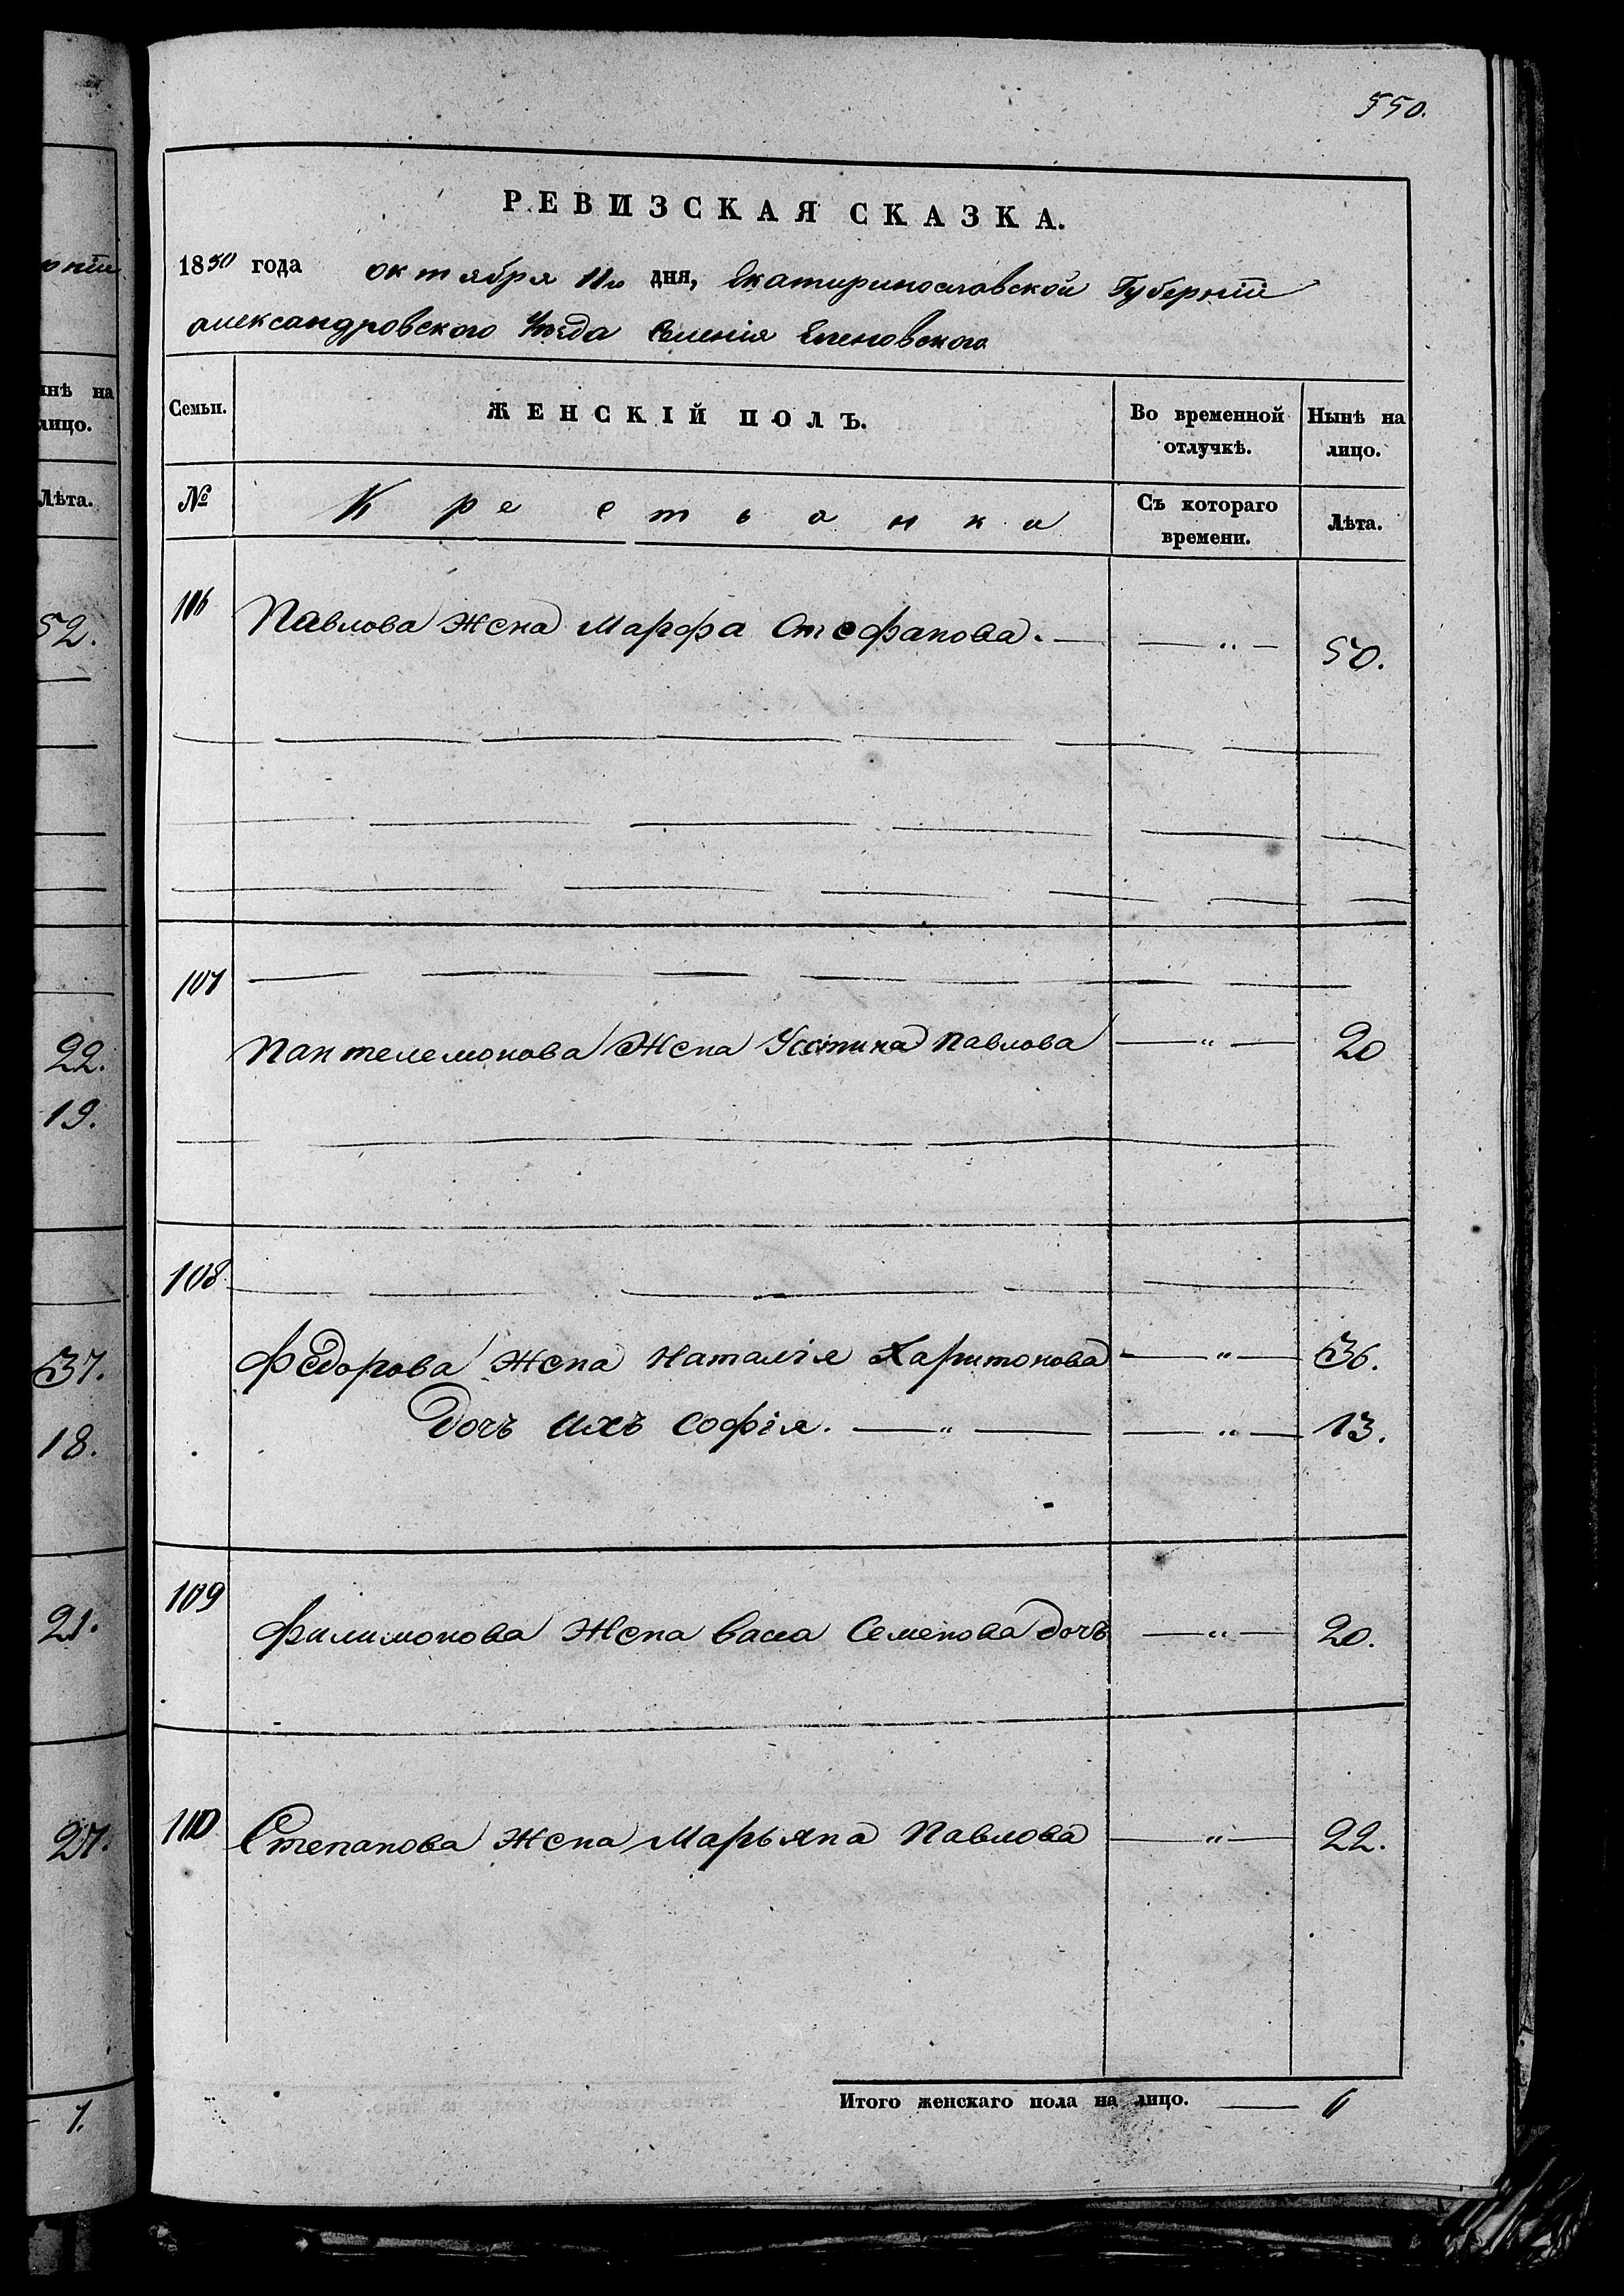 550.
РЕВИЗСКАЯ СКАЗКА.
1850 года октября 11го дня, Екатиринославской Губернiи
александровского Уѣзда Селенiя Еленовского
Семьи.
ЖЕНСКIЙ ПОЛЪ.
Во временной отлучкѣ.
Нынѣ на лицо.
№
Крестьанки
Съ котораго времени.
Лѣта.
106 Павлова Жена Марфа Стефанова. — „ — 50.
107
Пантелемонова Жена Устина Павлова — „ — 20
108
Федорова Жена Наталiя Харитонова — „ — 36.
Дочь ихъ Софiя. — „ — — „ — 13.
109
Филимонова Жена Васса Семенова дочь — „ — 20.
110 Степанова Жена Марьяна Павлова — „ — 22.
Итого женскаго пола на лицо. — 6
нѣ на
лицо.
Лѣта.
52.
22.
19.
37.
18.
21.
27.
7.